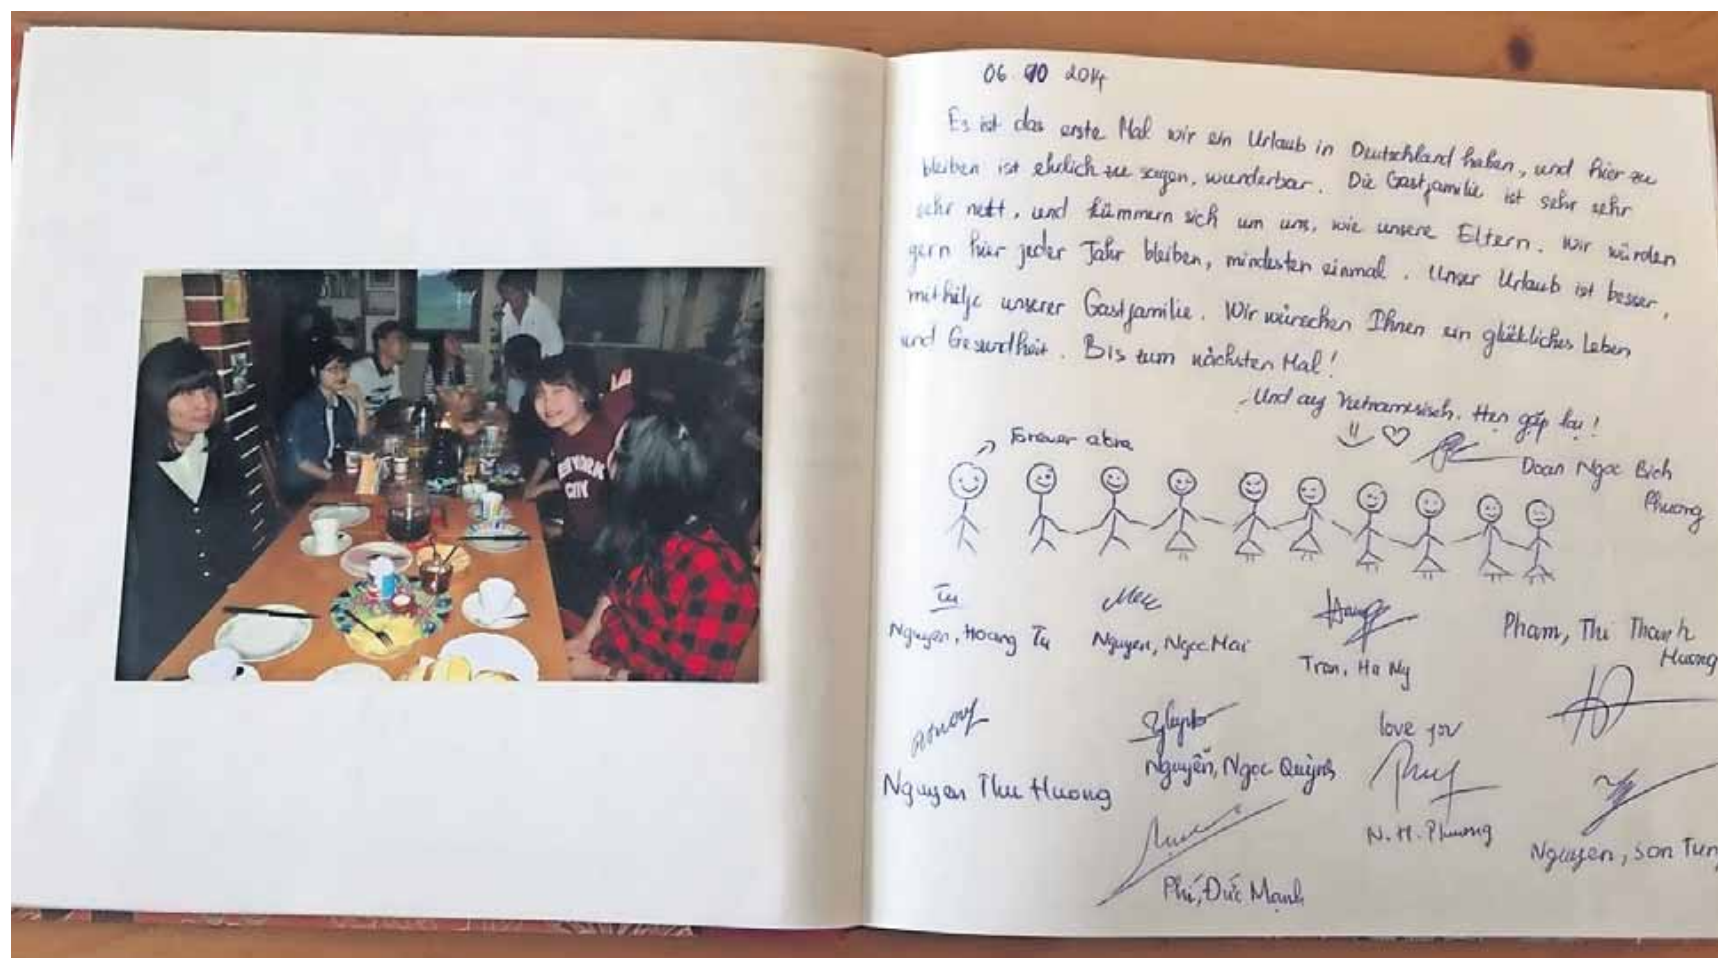 06 10 2014
Es ist das erste Mal wir ein Urlaub in Deutschland haben, und hier zu
bleiben ist ehrlich zu sagen, wunderbar. Die Gastfamilie ist sehr sehr
sehr nett, und kümmern sich um uns, wie unsere Eltern. Wir würden
gern hier jeder Jahr bleiben, mindesten einmal. Unser Urlaub ist besser,
mithilfe unserer Gastfamilie. Wir wünschen Ihnen ein glückliches Leben
und Gesundheit. Bis zum nächsten Mal!
Und auf Vietnamesisch. Hẹn gặp lại!
Forever alone
Doan Ngoc Bich
Phuong
Tu
Nguyen, Hoang Tu
Mai
Nguyen, Ngoc Mai
Tran, Ha My
Pham, Thi Thanh
Huong
Nguyen Thu Huong
Nguyễn, Ngọc Quỳnh
love you
N. H. Phuong
Nguyen, Son Tun
Phí, Đức Mạnh
NEW YORK
CITY